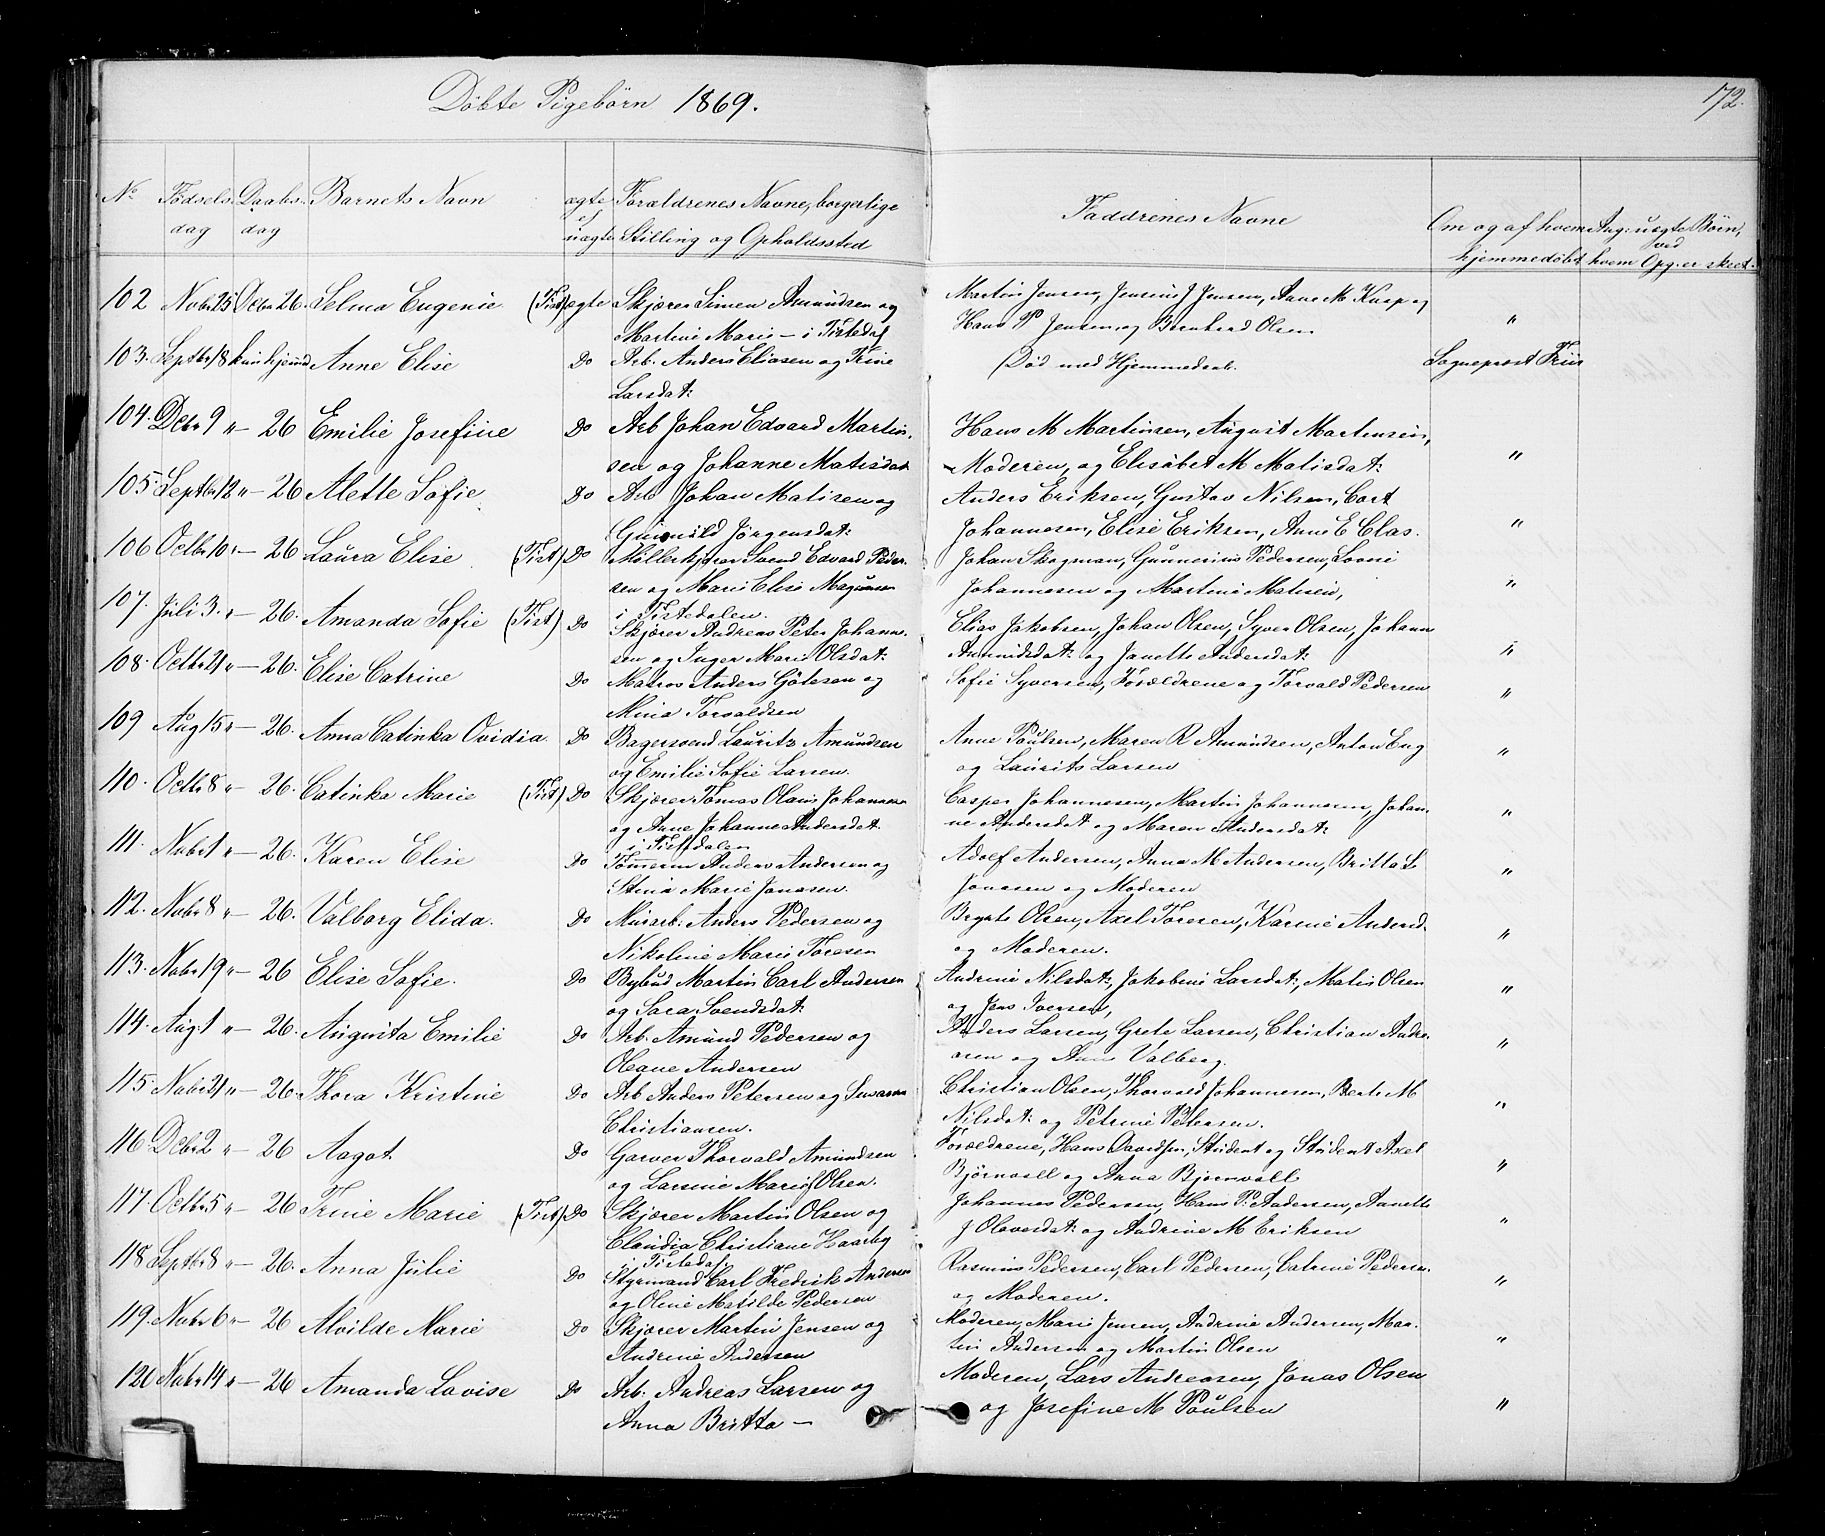 Döbte Pigebörn 1869.
172.
No Fødsels Daabs Barnets Navn ægte Forældrenes Navne, borgerlige Faddrenes Navne Om og af hvem Ang: uægte Börn,
dag dag el Stilling og Opholdssted hjemmedöbt ved
uægte hvem Opg: er skeet
102 Nobr 25 Dcbr 26. Selma Eugenie (Tist) ægte Skjærer Simen Amundsen og Martin Jensen, J Jensen, Anne M Kasp og
Martine Marie — i Tistedal Hans P Jensen, og Bernhard Olsen "
103. Septbr 18 kun hjemmd Anne Elise Do Arb. Anders Eliasen og Trine Död med Hjemmedaab. Sogneprest Friis
Larsdat:
104. Dcbr 9 " — 26 Emilie Josefine Do Arb Johan Edvard Martin- Hans M Martinsen, August Martensen,
sen og Johanne Matisdat Moderen, og Elisabet M Matisdat: "
105. Septbr 12 " — 26 Alette Sofie Do Arb Johan Matisen og Anders Eriksen, Gustav Nilsen, Carl
Gunnild Jörgensdat: Johannesen, Elise Eriksen, Anne E Clas. "
106 Octbr 10 " — 26 Laura Elise (Tist) Do Møllerkjörer Svend Edvard Peder- Johan Skogman, Gunnerius Pedersen, Lovise
sen og Marie Elise Magnusen Johannesen og Martine Matisen, "
i Tistedalen.
107. Juli 3. " — 26. Amanda Sofie (Tist) Do Skjærer Andreas Peter Johann- Elias Jakobsen, Johan Olsen, Syver Olsen, Johann
sen og Inger Marie Olsdat: Amundsdat: og Janette Andersdat: "
108. Octbr 21 " — 26. Elise Catrine Do Matros Anders Götesen og Sofie Syversen, Forældrene og Torvald Pedersen "
Mina Torvaldsen
109 Aug 15 " — 26. Anna Catinka Ovidia. Do Bagersvend Lauritz Amundsen Anne Paulsen, Maren R Amundsen, Anton Eng
og Emilie Sofie Larsen. og Laurits Larsen "
110. Octbr 8 " — 26. Catinka Marie (Tist) Do Skjærer Tomas Olaus Johannesen Casper Johannesen, Martin Johannesen, Johan-
og Anne Johanne Andersdat. ne Andersdat og Maren Andersdat: "
i Tistedalen
111. Nobr 1 " — 26. Karen Elise Do Tömmerm Anders Andersen og Adolf Andersen, Anna M Andersen, Britta S
Stina Marie Jonasen. Jonasen og Moderen "
112. Nobr 8 " — 26. Valborg Elida. Do Murarb. Anders Pedersen og Olsen, Axel Toresen, Karine Andersd
Nikoline Marie Toresen og Moderen. "
113. Nobr 19 " — 26 Elise Sofie. Do Bybud Martin Carl Andersen Andrine Nilsdat:, Jakobine Larsdat:, Matis Olsen
og Sara Svendsdat: og Jens Iversen, "
114. Aug. 1 " — 26. Augusta Emilie Do Arb. Amund Pedersen og Anders Larsen, Grete Larsen, Christian Andre-
Oleane Andersen asen og Anne Valberg. "
115. Nobr 21 " — 26. Thora Kristine Do Arb Anders Petersen og Susanna Christian Olsen, Thorvald Johannesen, Berte M
Christiansen. Nilsdat: og Petrine Petersen. "
116 Dcbr 2 " — 26 Aagot. Do Garver Thorvald Amundsen Forældrene, Hans Davidsen, Student og Student Axel
og Larsine Marie Olsen. Björnvall og Anna Bjornvall "
117. Octbr 5 " — 26 Trine Marie (Tist) Do Skjærer Martin Olsen og Johannes Pedersen, Hans P. Andersen, Annette
Claudia Christiane Haarby J Olaversdat: og Andrine M Eriksen "
i Tistedal.
118 Septbr 8 " — 26. Anna Julie Do Styrmand Carl Fredrik Andersen Rasmus Pedersen, Carl Pedersen, Catrine Pedersen
og Oline Matilde Pedersen og Moderen. "
119. Nobr 6 " — 26 Alvilde Marie Do Skjærer Martin Jensen og Moderen, Marie Jensen, Andrine Andersen, Mar-
Andrine Andersen tin Andersen og Martin Olsen "
120 Nobr 14 " — 26 Amanda Lovise Do Arb. Andreas Larsen og Moderen, Lars Andreasen, Jonas Olsen
Anna Britta — og Josefine M Paulsen "